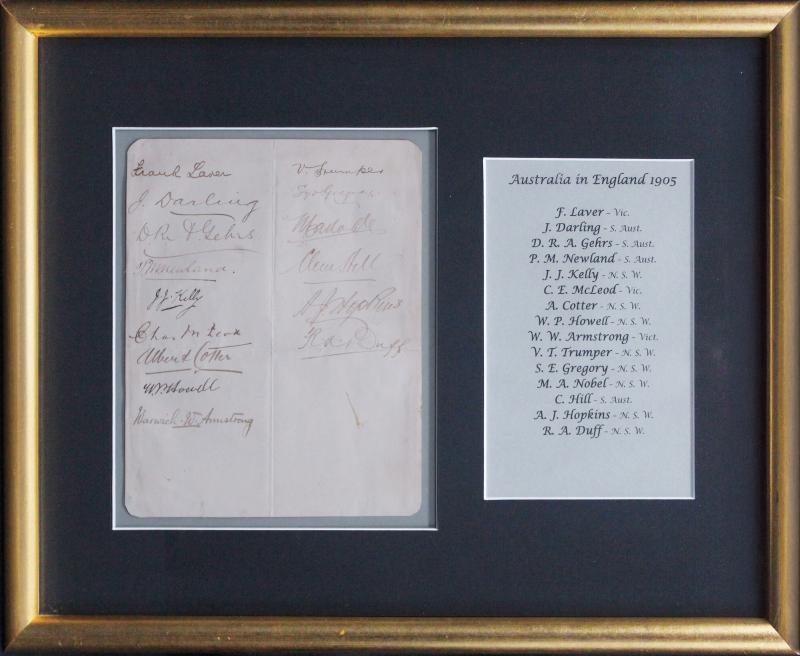 Frank Laver
J. Darling
D.R.A. Gehrs
P.M. Newland.
J.J. Kelly
Chas McLeod
Albert Cotter
W.P. Howell
Warwick W. Armstrong
V. Trumper
Syd Gregory
M A Noble
Clem Hill
A J Hopkins
R.A. Duff
Australia in England 1905
F. Laver - Vic.
J. Darling - S. Aust.
D. R. A. Gehrs - S. Aust.
P. M. Newland - S. Aust.
J. J. Kelly - N. S. W.
C. E. McLeod - Vic.
A. Cotter - N. S. W.
W. P. Howell - N. S. W.
W. W. Armstrong - Vict.
V. T. Trumper - N. S. W.
S. E. Gregory - N. S. W.
M. A. Nobel - N. S. W.
C. Hill - S. Aust.
A. J. Hopkins - N. S. W.
R. A. Duff - N. S. W.